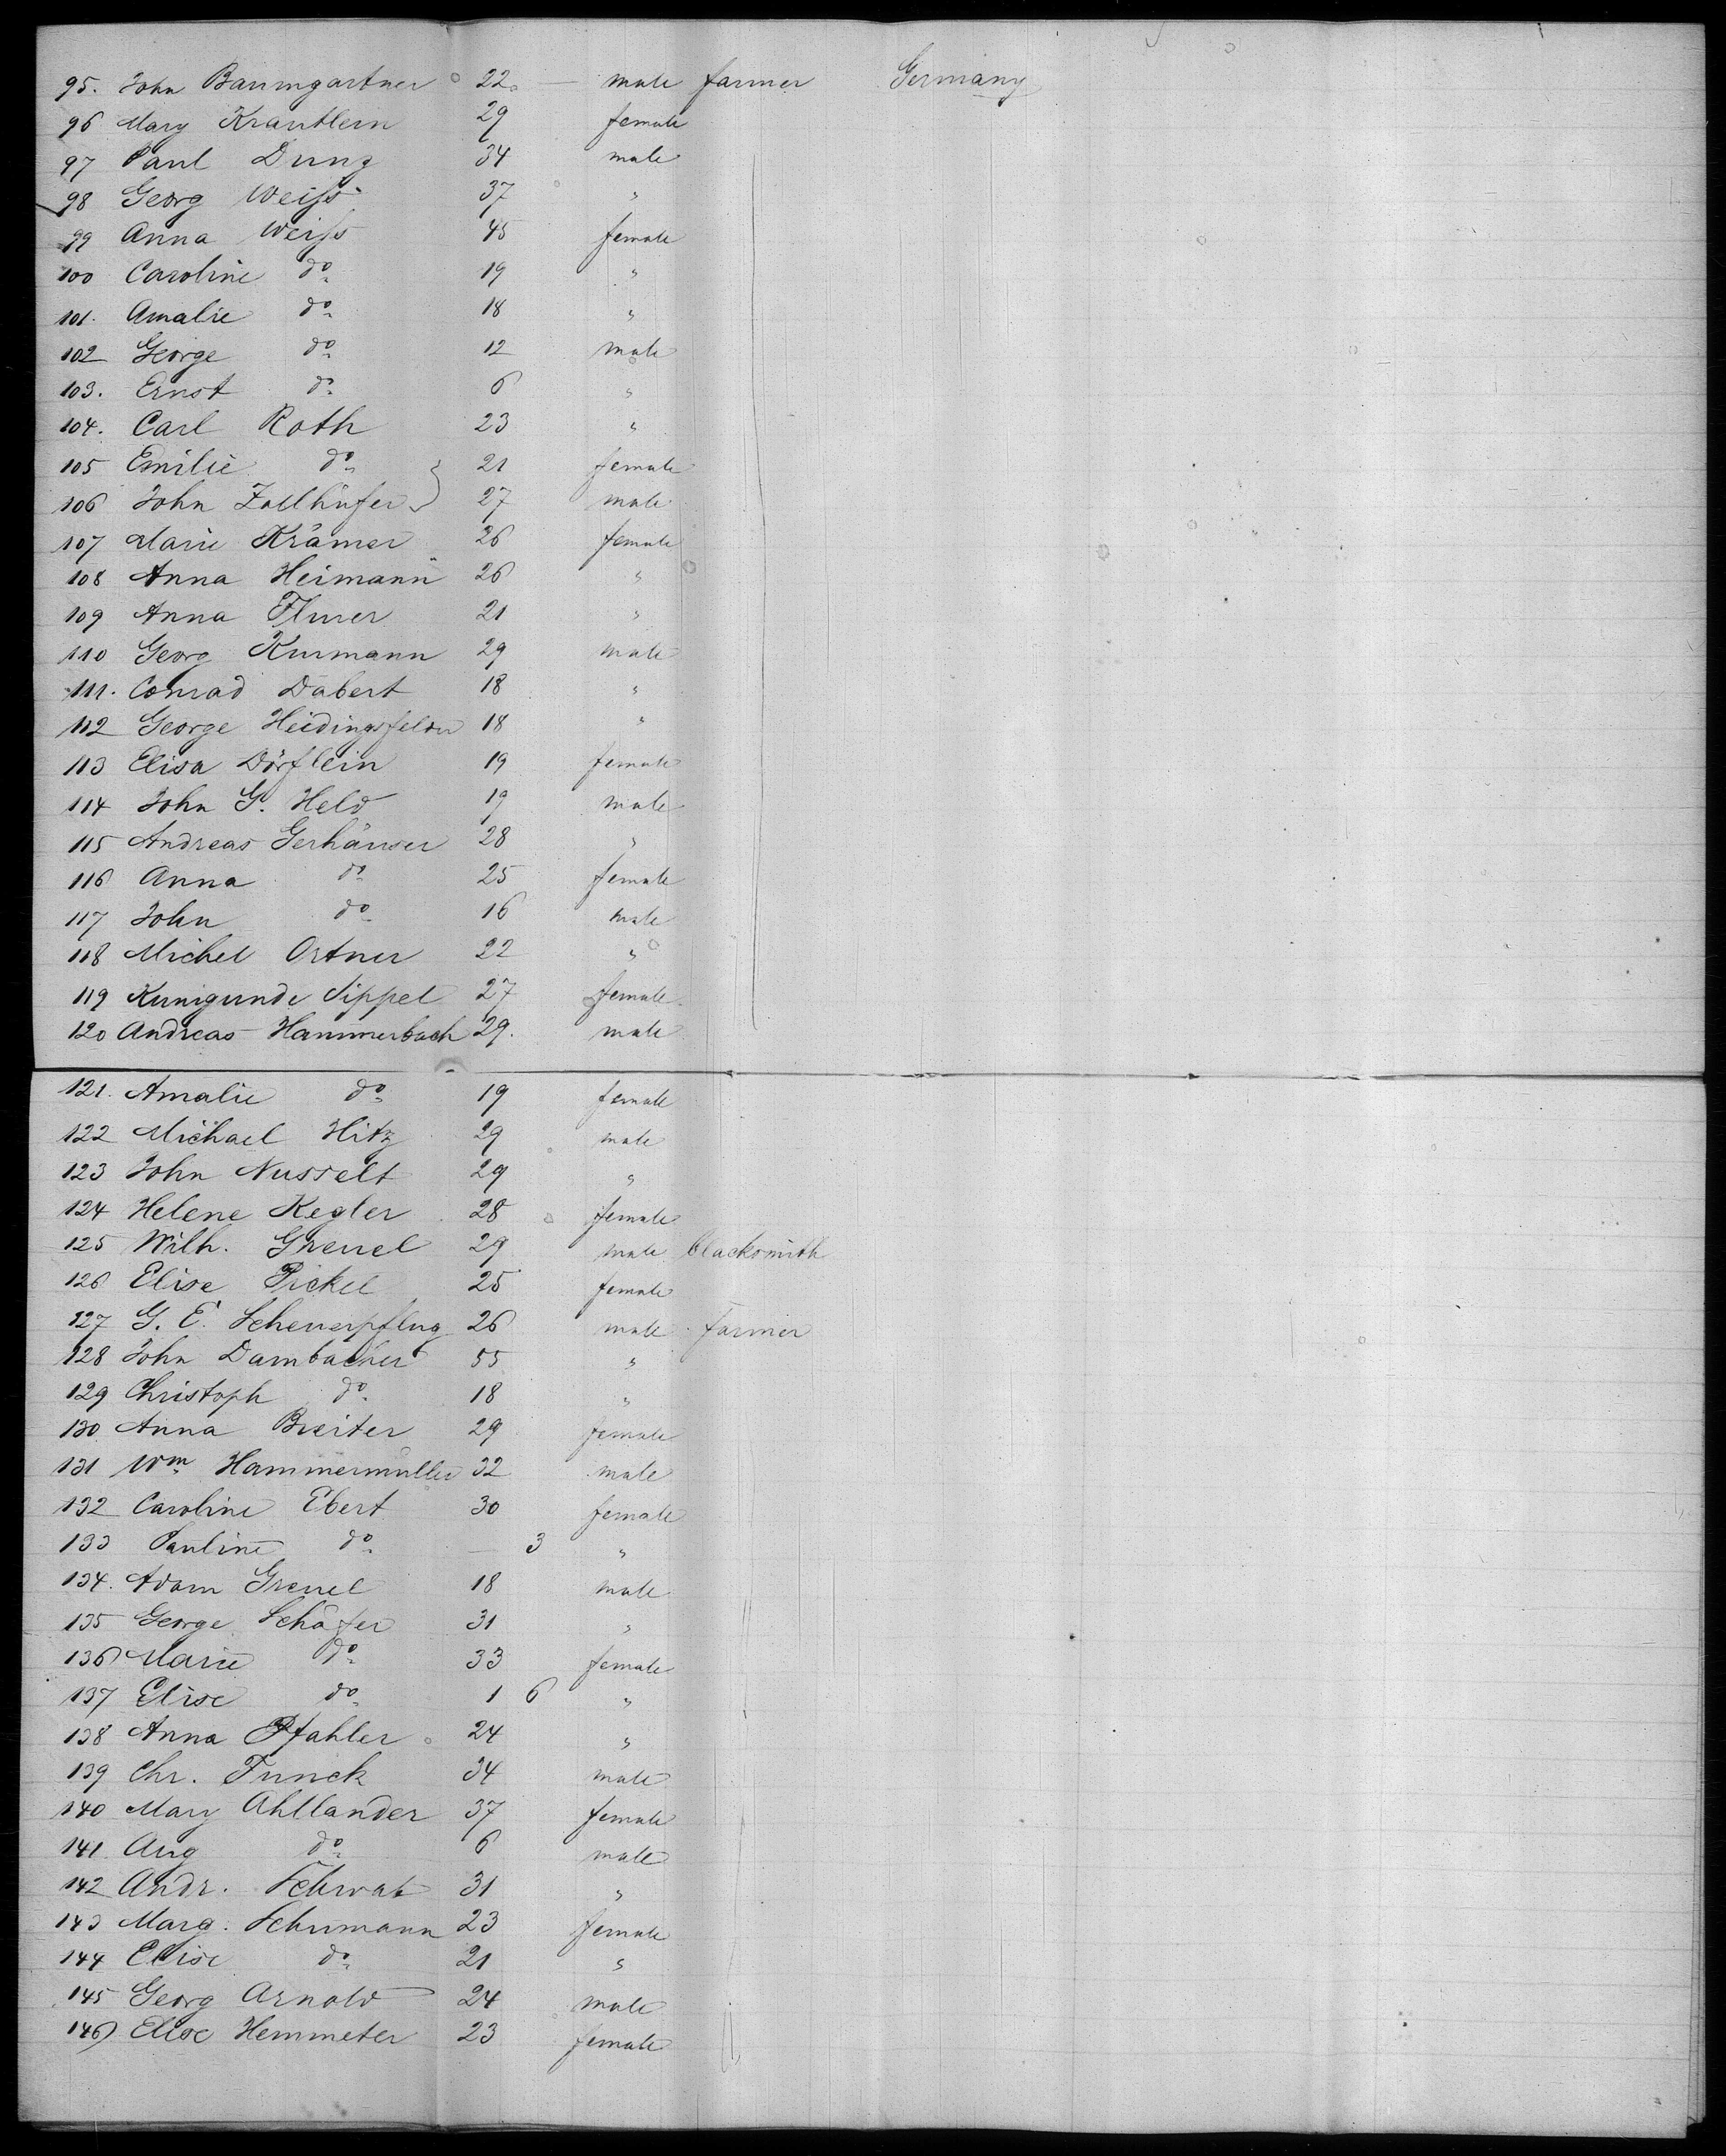 95. John Baumgartner 22 — male farmer Germany
96 Mary Krautlein 29 female
97 Paul Dung 34 male
98 Georg Weiss 37 "
99 Anna Weiss 45 female
100 Caroline do 19 "
101. Amalie do 18 "
102 George do 12 male
103. Ernst do 6 "
104. Carl Roth 23 "
105 Emilie do 21 female
106 John 27 male
107 Marie Krämer 26 female
108 Anna Heimann 26 "
109 Anna 21 "
110 Georg Kurmann 29 male
111. Conrad Dabert 18 "
112 George Heidingsfelder 18 "
113 Elisa Dörflein 19 female
114 John G. Held 19 male
115 Andreas Gerhäuser 28 "
116 Anna do 25 female
117 John do 16 male
118 Michel Ortner 22 "
119 Kunigunde Sippel 27 female
120 Andreas Hammerbach 29. male
121. Amalie do 19 female
122 Michael Hitz 29 male
123 John Nusselt 29 "
124 Helene Kegler 28 female
125 Wilh. Greuel 29 male blacksmith
126 Elise Pickel 25 female
127 G. E. Scheuerpflug 26 male farmer
128 John Dambacher 55 "
129 Christoph do 18 "
130 Anna Breiter 29 female
131 Wm Hammermüller 32 male
132 Caroline Ebert 30 female
133 Pauline do — 3 "
134. Adam Greuel 18 male
135 George Schäfer 31 "
136 Marie do 33 female
137 Elise do 1 6 "
138 Anna Pfahler 24 "
139 Chr. Funck 34 male
140 Mary Ahllander 37 female
141 Aug do 6 male
142 Andr. Schwab 31 "
143 Marg. Schumann 23 female
144 Elise do 21 "
145 Georg Arnold 24 male
146 Elise Hemmeter 23 female